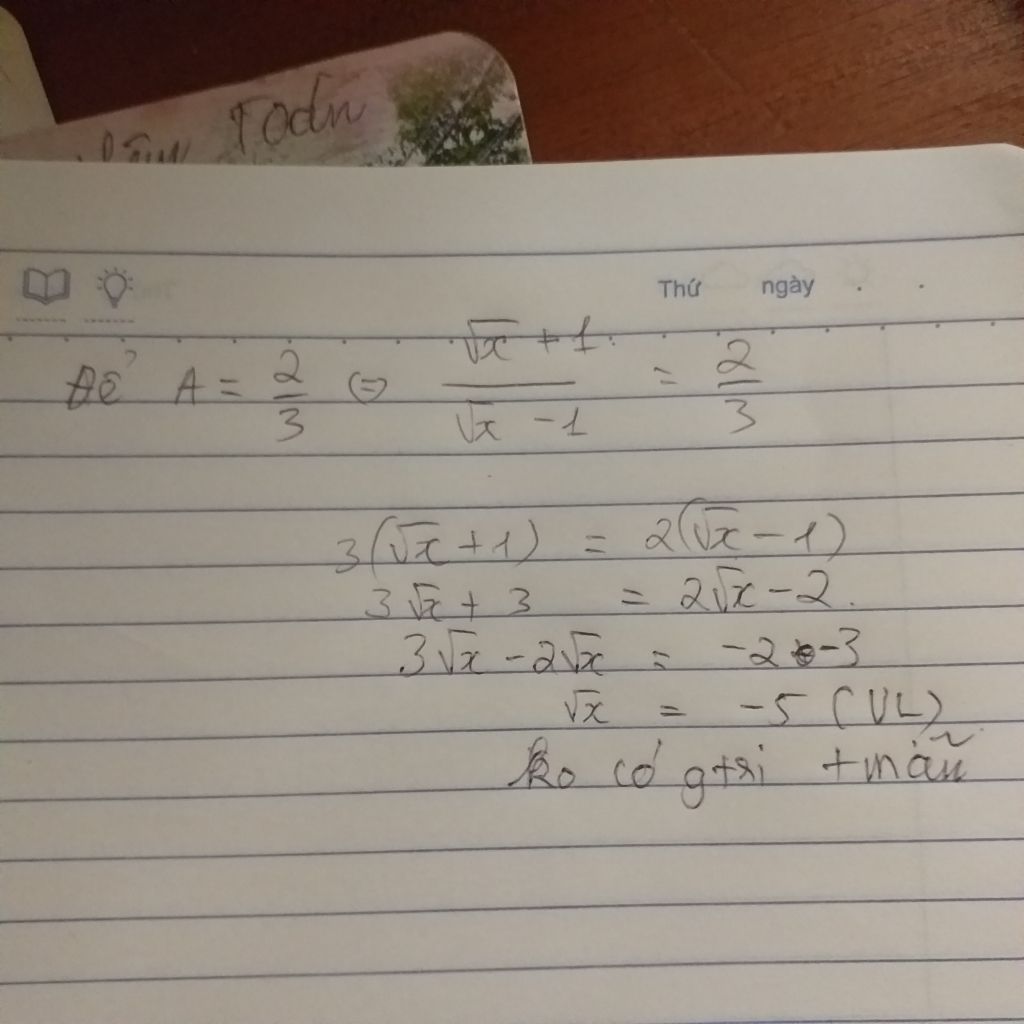 Toán
Thứ ngày . .
Để A = 2/3 ⇔ (√x + 1)/(√x - 1) = 2/3
3(√x + 1) = 2(√x - 1)
3√x + 3 = 2√x - 2.
3√x - 2√x = -2 -3
√x = -5 (VL)
ko có gtri tmãn